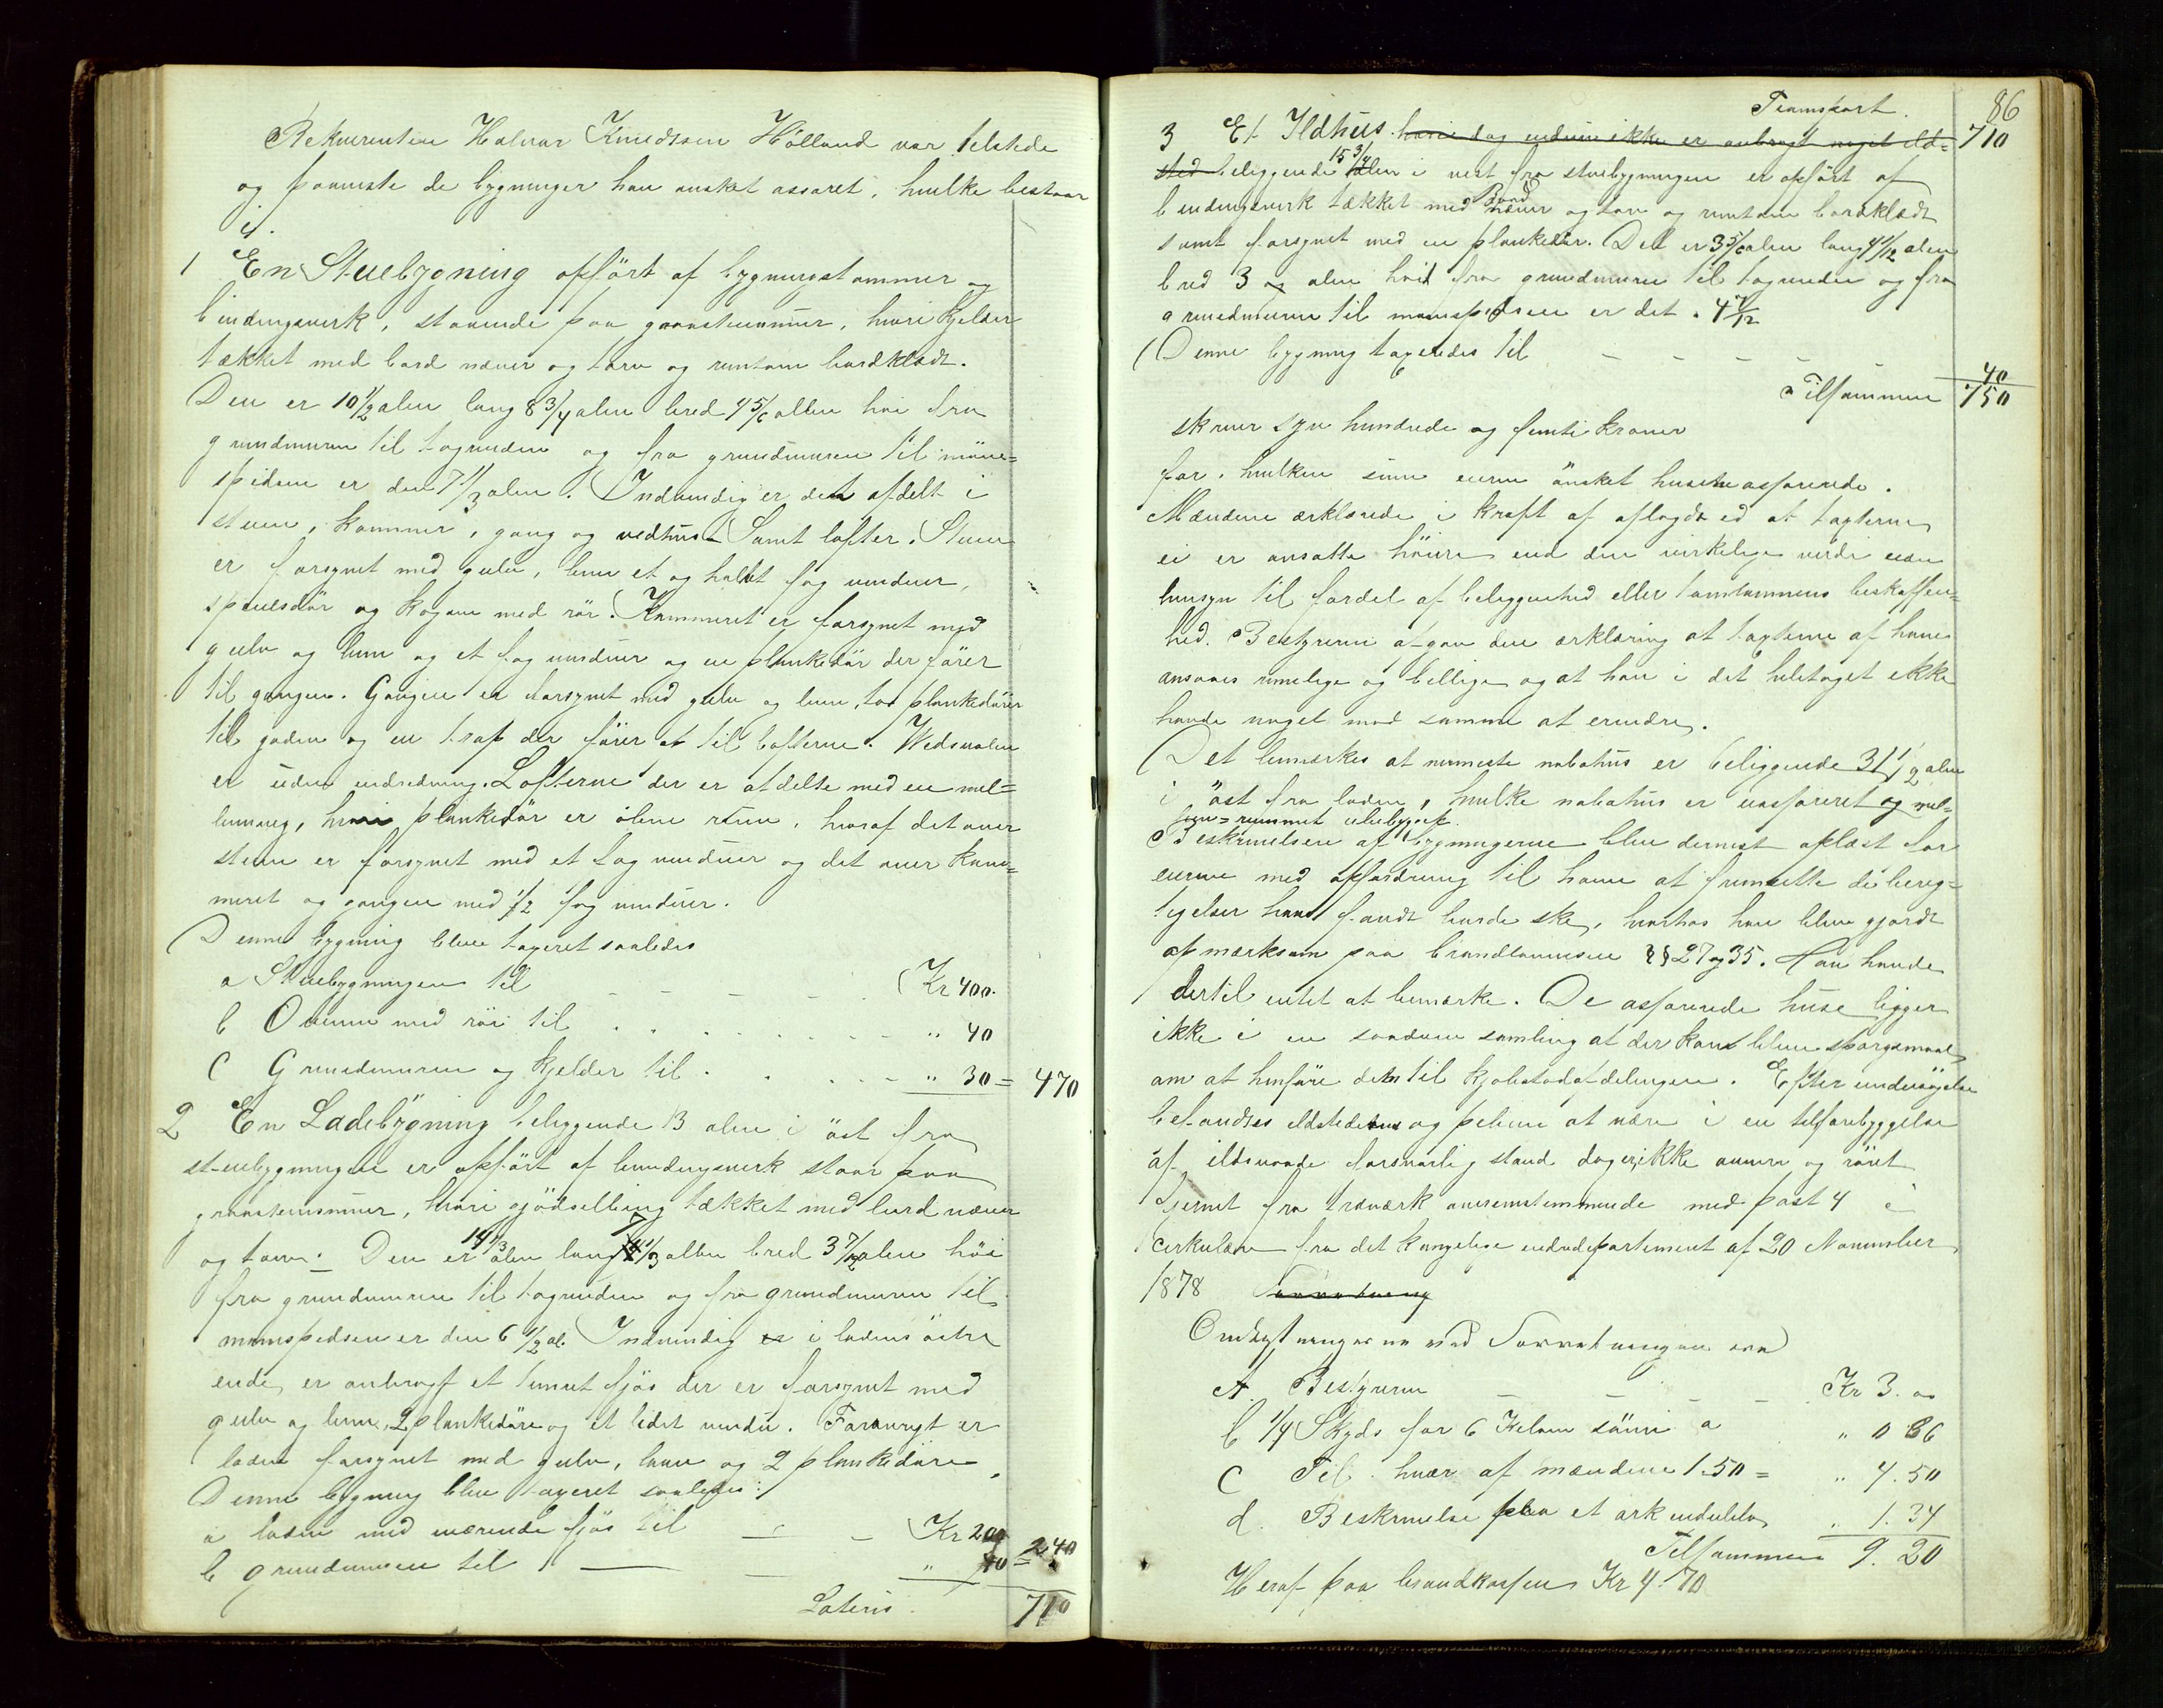 Rekvirenten Halvar Knudtsen Hölland var telstede
og paaviste de bygninger han önsket assuret, hvilke bestaar
i.
1 En Stuebygning opfört af bygningstømmer og
bindingsverk, staaende paa graastensmur, hvori kjelder
tækket med bord næver og torv og runtom bordklædt.
Den er 10 1/2 alen lang 8 3/4 alen bred 4 5/6 allen höi fra
grundmuren til tagrenden og fra grundmuren til möne=
spidsen er den 7 1/3 alen. Indvendig er den afdelt i
stuen, kammer, gang og vedhus samt lofter. Stuen
er forsynet med gulv, lem et og halvt fag vinduer,
speilsdör og kogovn med rör. Kammeret er forsynet med
gulv og lem og et fag vinduer og en plankedör der förer
til gangen. Gangen er forsynet med gulv og lem, to plankedörer
til gaden og en trap der förer op til lofterne. Vedsvalen
er uden indredning. Lofterne der er afdelte med en mel=
lemvæg, hvori plankedör er ölene rum, hvoraf det over
stuen er forsynet med et fag vinduer og det over kam=
meret og gangen med 1/2 fag vinduer.
Denne bygning blev taxeret saaledes
a Stuebygningen til - - - - Kr 400.
b Ovnene med rör til . . . . - - - " 40
c Grundmuren og kjelder til . . . . - - " 30 = 470
2 En Ladebygning beliggende 13 alen i öst fra
stuebygningen er opfört af bindingsverk staar paa
graastensmur, hvori gjödselbing tækket med bord næver
og torv. Den er 14 1/3 alen lang 4 1/3 allen bred 3 7/12 alen höi
fra grundmuren til tagrenden og fra grundmuren til
mönspedsen er den 6 1/2 al. Indvendig er i ladens östre
ende er anbragt et tömret fjös der er forsynet med
gulv og lem, 2 plankedöre og et lidet vindu. Forövrigt er
laden forsynet med gulv, laave og 2 plankedöre
Denne bygning blev taxeret saaledes:
a laden med værende fjös til - - - Kr 200
b grundmuren til - - " 40 = 240
Lateris. 710
86
Transport. 710
3 Et Ildhus hvori dog endnu ikke er anbragt noget ild=
sted beliggende 15 3/4 alen i vest fra stuebygningen er opfört af
bindingsverk tækket med Bord næver og torv og runtom bordklædt
samt forsynet med en plankedör. Det er 3 5/6 alen lang 4 1/12 alen
bred 3 og alen höit fra grundmuren til tagrenden og fra
grundmuren til mönspidsen er det 4 7/12
Denne bygning taxeredes til - - - - 40
Tilsammen 750
skriver syv hundrede og femti kroner
for, hvilken sum eieren önsket husene assurerede.
Mændene erklærede i kraft af aflagdt ed at taxterne
ei er ansatte höiere end den virkelige verdi uden
hensyn til fordel af beliggenhed eller tomtommens beskaffen=
hed. Bestyreren afgav den erklæring at taxterne af ham
ansaaes rimelige og billige og at han i det heletaget ikke
havde noget mod samme at erindre.
Det bemærkes at nærmeste nabohus er beliggende 31 1/2 alen
i öst fra laden, hvilke nabohus er uassureret og mel=
lem=rummet ubebygget.
Beskrivelsen af bygningerne blev dernest oplæst for
eieren med opfordring til ham at fremsette de berig=
tigelser han fandt burde ske, hvorhos han blev gjordt
opmærksom paa brandlovens §§ 27 og 35. Han havde
dertil intet at bemærke. De assurerede huse ligger
ikke i en saadan samling at der kan blive spørgsmaal
om at henföre dem til kjøbstadafdelingen. Efter undersögelse
befandtes ildstederne og piberne at være i en til forebyggelse
af ildsvaade forsvarlig stand dog er ikke ovnen og röret
fjernet fra træværk overensstemmende med post 4 i
Cirkulære fra det kongelige indredepartement af 20 November
1878
Omkostningerne ved Forretningen ere
A. Bestyreren - - - - Kr 3. 00
b 1/4 Skyds for 6 Kilom a " 0 36
c Til hver af mændene 1.50 = " 4.50
d. Beskrivelse paa et ark " 1.34
Tilsammen 9. 20
Heraf paa brandkassen Kr 4.70